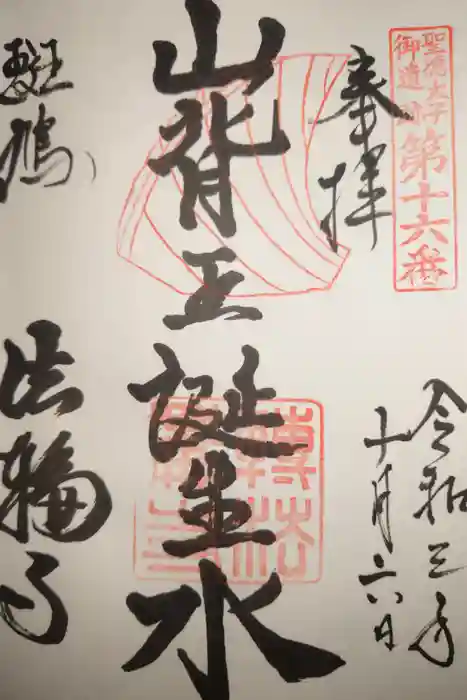 聖徳太子
御遺跡
第十六番
奉拝
令和三年
十月二六日
山背王誕生水
斑鳩
法輪寺